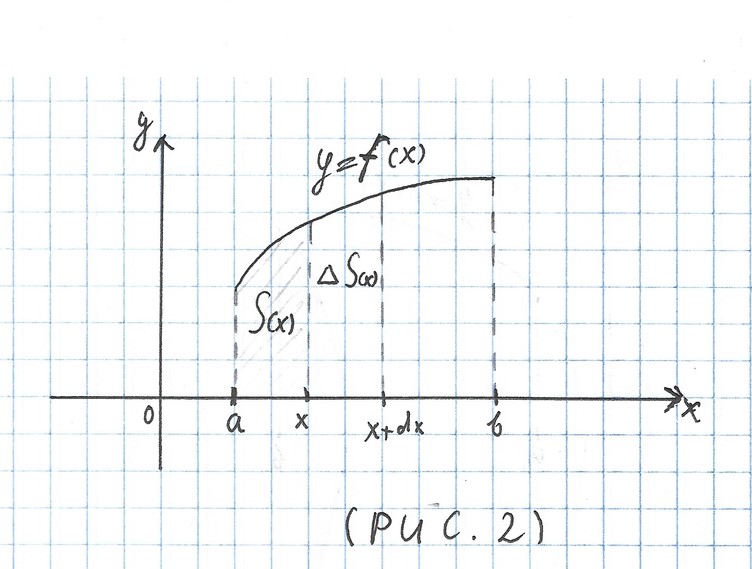 y
y=f(x)
ΔS(x)
S(x)
0 a x x+dx b x
(РИС. 2)